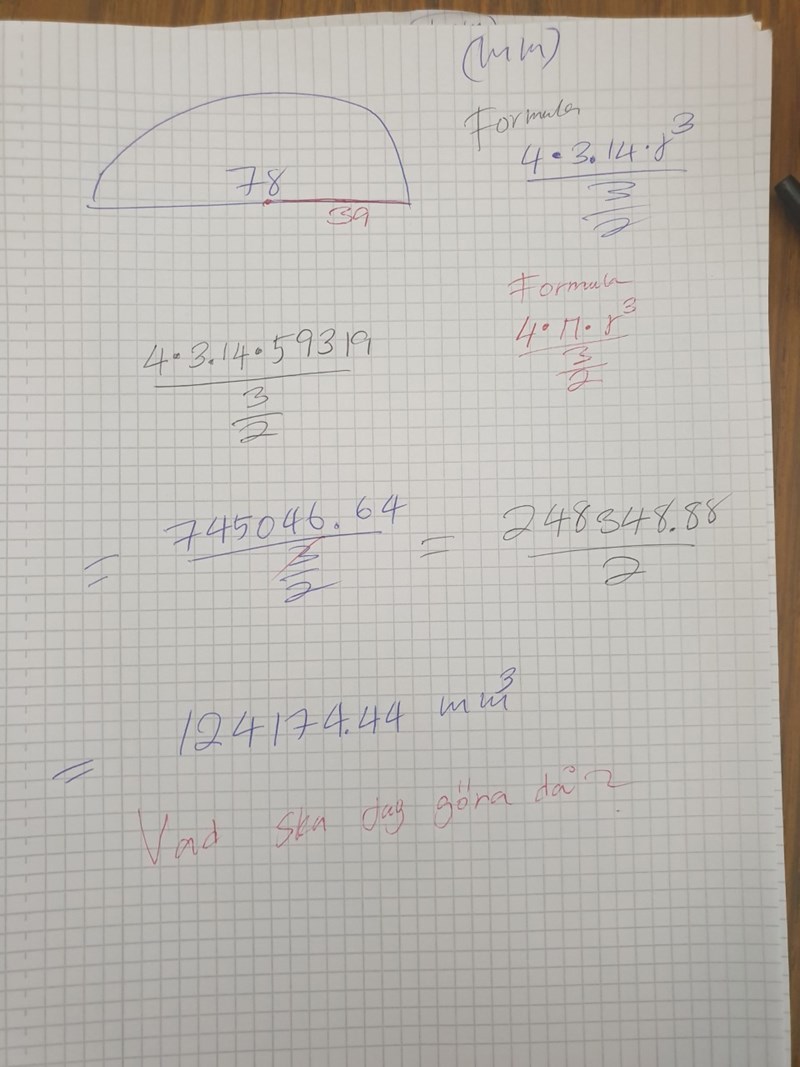 (mm)
Formula
4·3.14·r³
3
2
78
39
Formula
4·π·r³
3
2
4·3.14·59319
3
2
= 745046.64 = 248348.88
3
2 2
= 124174.44 mm³
Vad ska jag göra då?